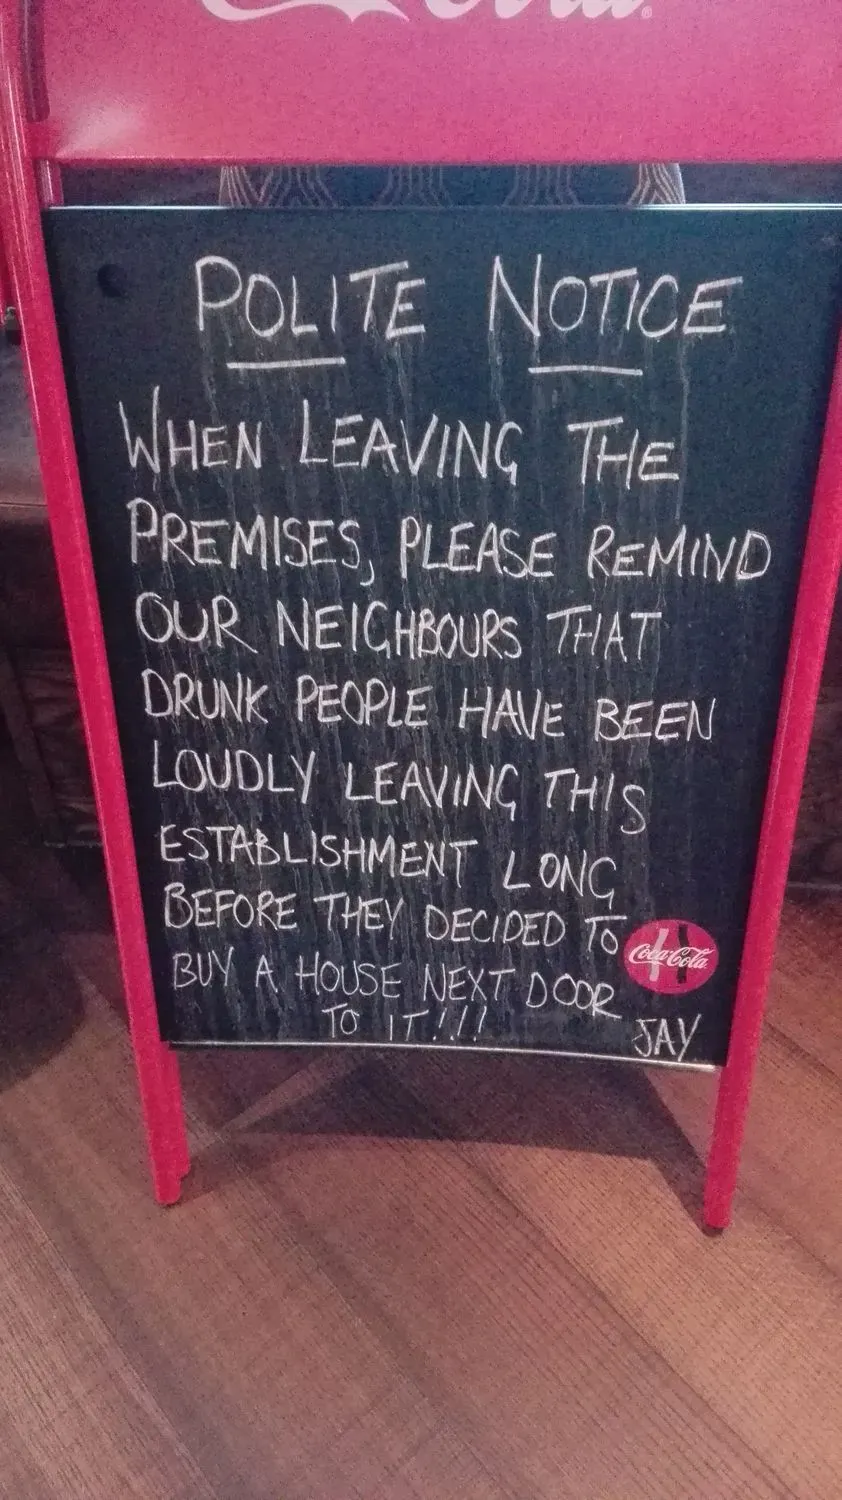 Cola
POLITE NOTICE
WHEN LEAVING THE
PREMISES, PLEASE REMIND
OUR NEIGHBOURS THAT
DRUNK PEOPLE HAVE BEEN
LOUDLY LEAVING THIS
ESTABLISHMENT LONG
BEFORE THEY DECIDED TO
Coca-Cola
BUY A HOUSE NEXT DOOR
TO IT!!!
JAY